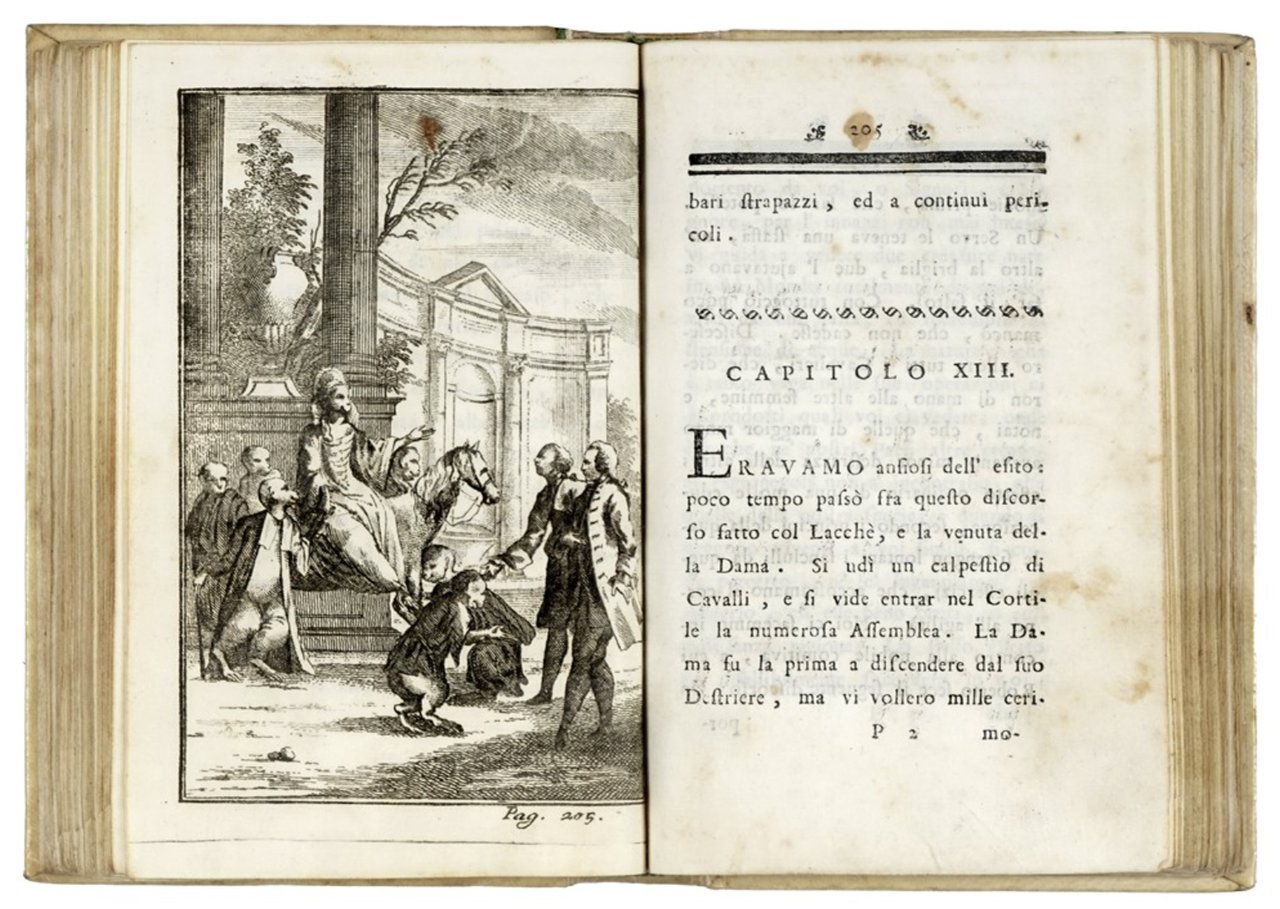 Pag. 205.
205
bari ſtrapazzi, ed a continui peri-
coli.
CAPITOLO XIII.
ERAVAMO anſioſi dell' eſito:
poco tempo paſsò fra queſto diſcor-
ſo fatto col Lacchè, e la venuta del-
la Dama. Si udì un calpeſtìo di
Cavalli, e ſi vide entrar nel Corti-
le la numeroſa Aſſemblea. La Da-
ma fu la prima a diſcendere dal ſuo
Deſtriere, ma vi vollero mille ceri-
P 2 mo-